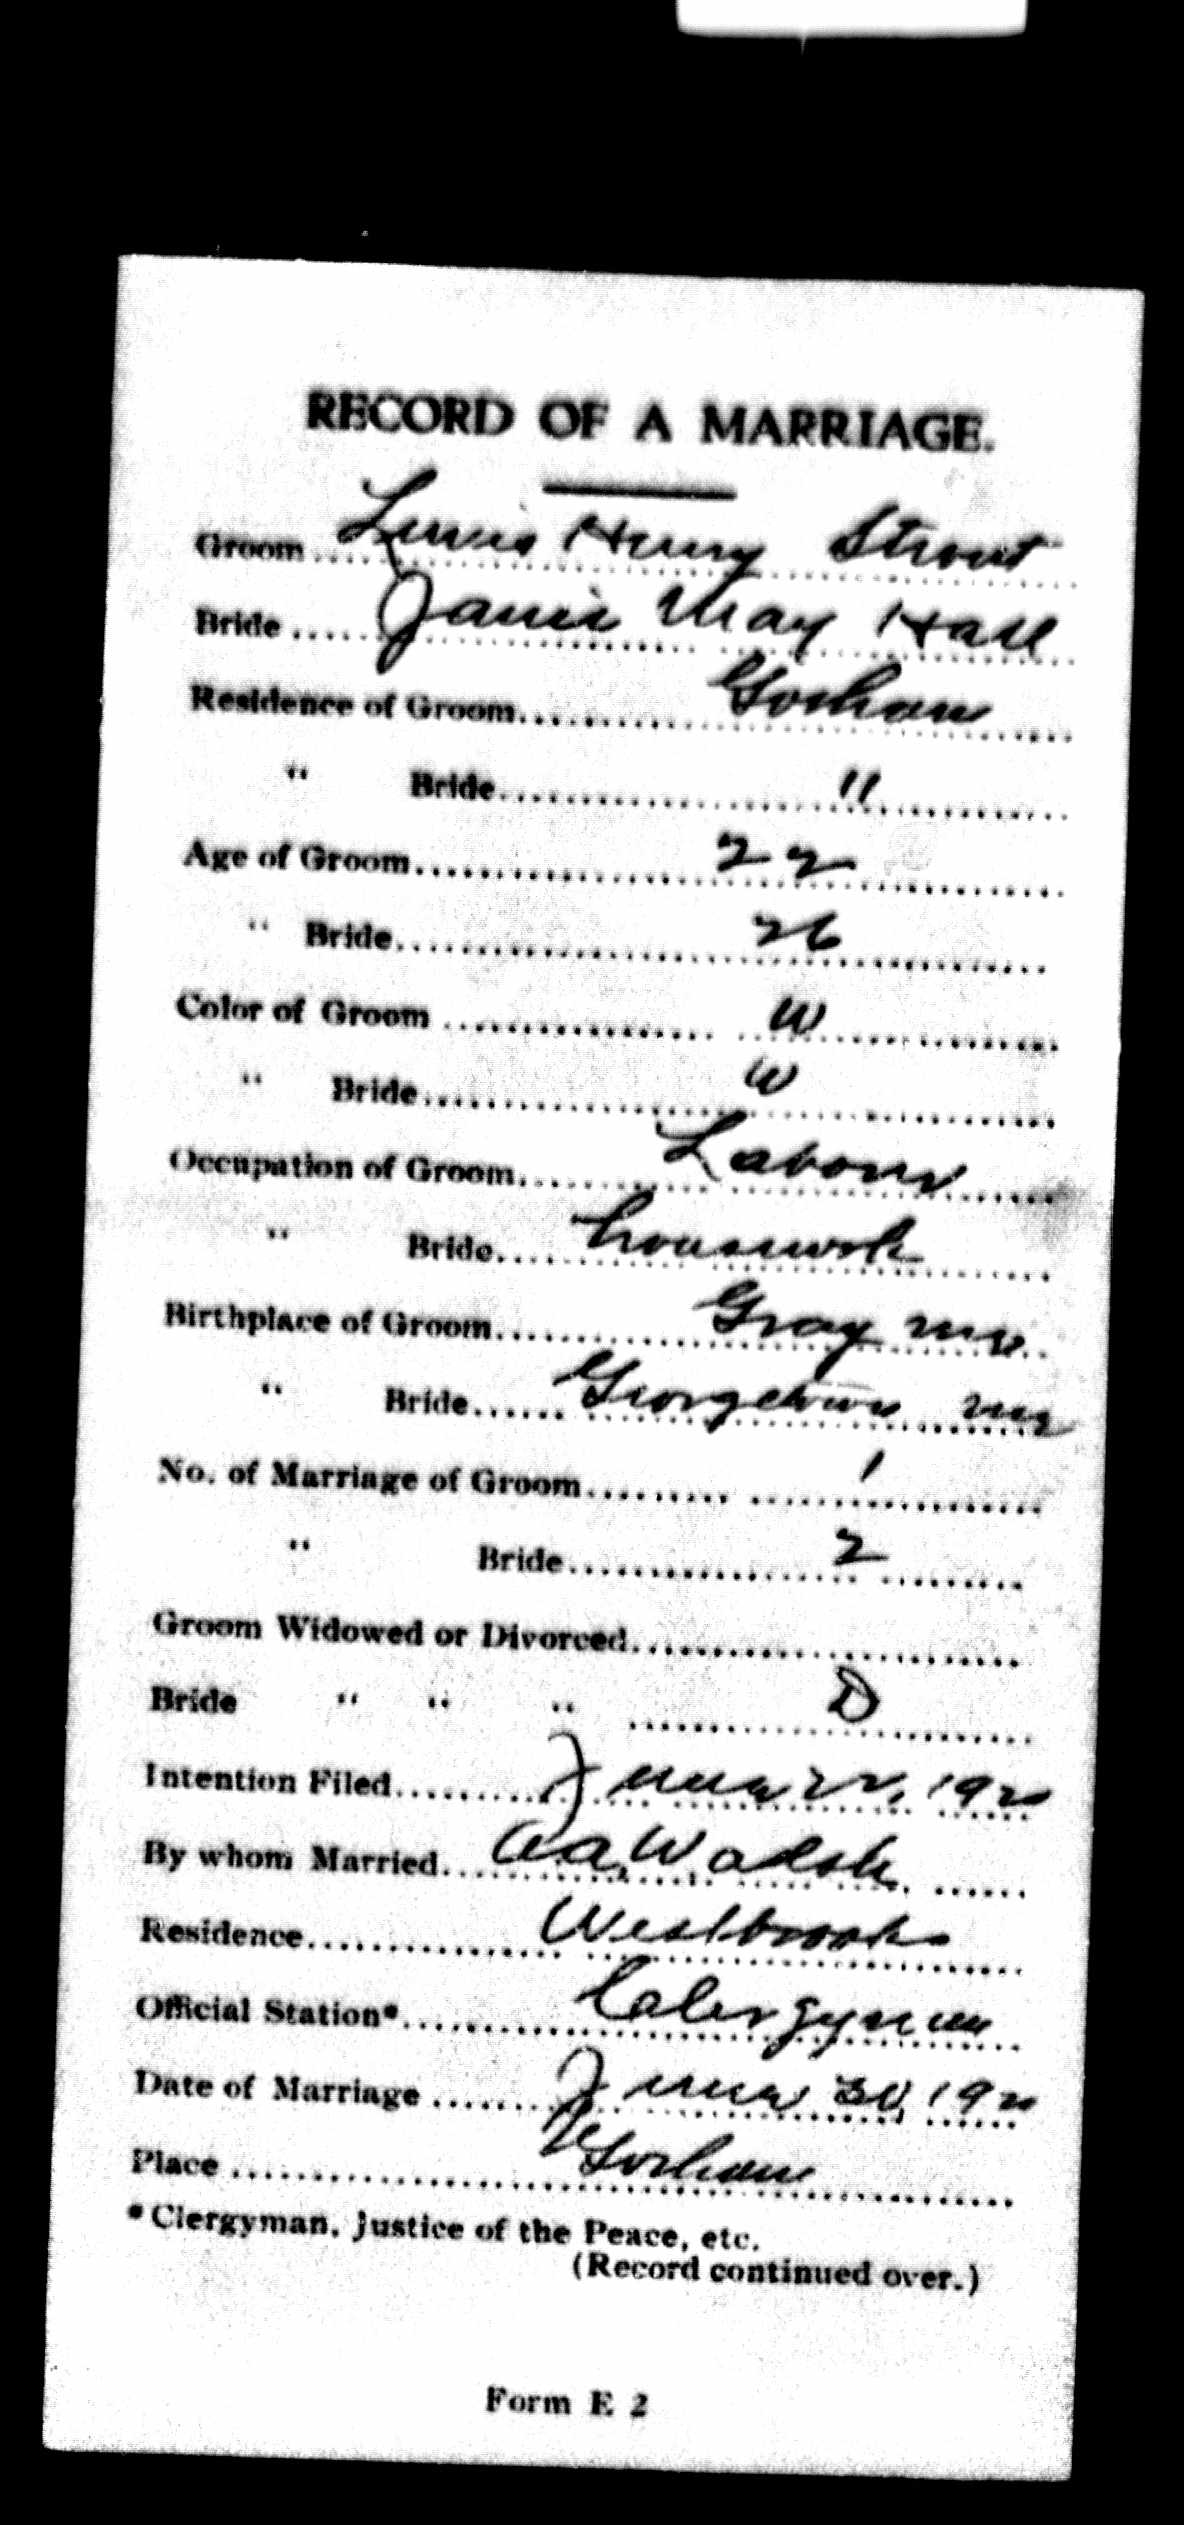 RECORD OF A MARRIAGE.
Groom Lewis Henry Strout
Bride Janie May Hall
Residence of Groom Gorham
" Bride "
Age of Groom 22
" Bride 26
Color of Groom W
" Bride W
Occupation of Groom Laborer
" Bride housewok
Birthplace of Groom Gray Me
" Bride Georgetown Me
No. of Marriage of Groom 1
" Bride 2
Groom Widowed or Divorced
Bride " " " D
Intention Filed 22, 192
By whom Married Walsh
Residence Westbrook
Official Station* Clergyman
Date of Marriage 30, 192
Place Gorham
*Clergyman, Justice of the Peace, etc.
(Record continued over.)
Form E 2